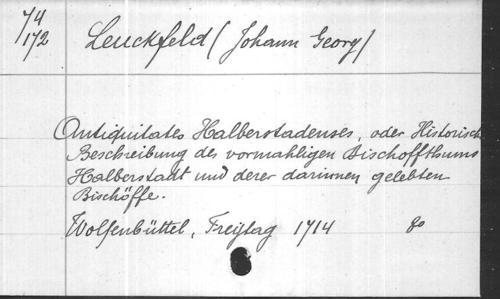 74
172
Leuckfeld (Johann Georg)
Antiquitates Halberstadenses, oder Historisch
Beschreibung des vormahligen Bischoffthums
Halberstadt und derer darinnen gelebten
Bischöffe.
Wolfenbüttel, Freÿtag 1714 8o